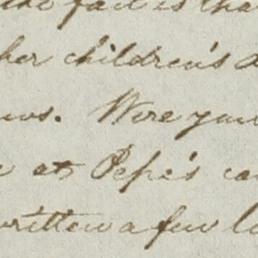 the fact is tha
her children's a
ws. Were you
at Pepe's ca
written a few l